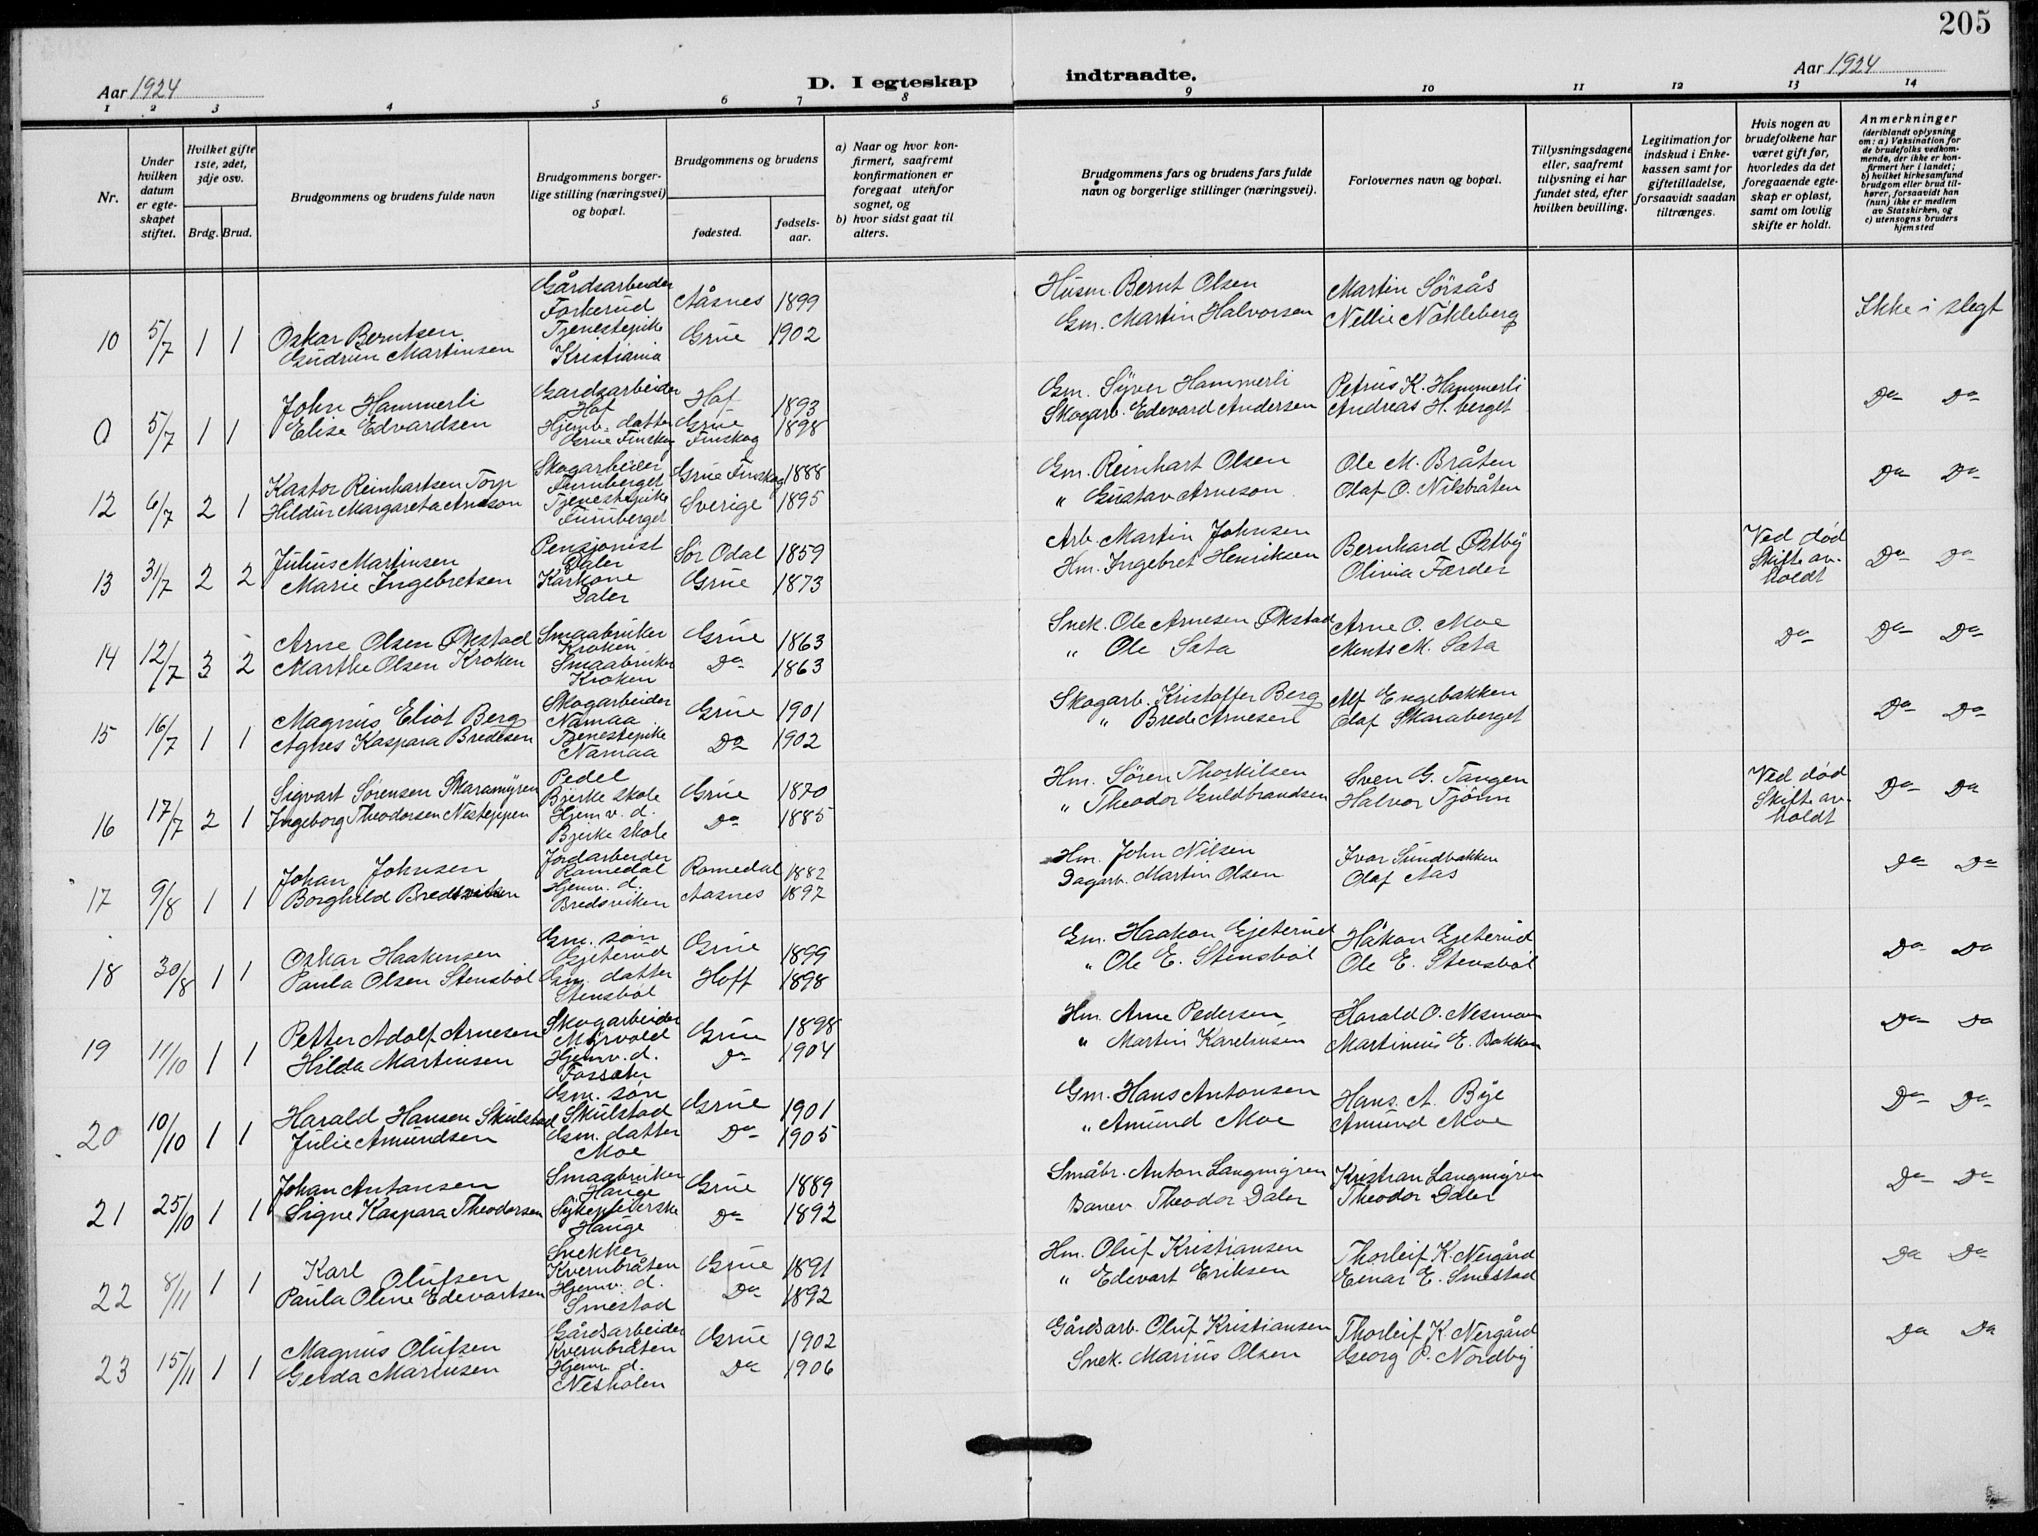 205
Aar 1924
D. I egteskap indtraadte.
Aar 1924
1 2 3 4 5 6 7 8 9 10 11 12 13 14
Nr.
Under hvilken datum er egteskapet stiftet.
Hvilket gifte 1ste, 2det, 3dje osv.
Brdg. Brud.
Brudgommens og brudens fulde navn
Brudgommens borgerlige stilling (næringsvei) og bopæl.
Brudgommens og brudens
fødested.
fødselsaar.
a) Naar og hvor konfirmert, saafremt konfirmationen er foregaat utenfor sognet, og
b) hvor sidst gaat til alters.
Brudgommens fars og brudens fars fulde navn og borgerlige stillinger (næringsvei).
Forlovernes navn og bopæl.
Tillysningsdagene eller, saafremt tillysning ei har fundet sted, efter hvilken bevilling.
Legitimation for indskud i Enkekassen samt for giftetilladelse, forsaavidt saadan tiltrænges.
Hvis nogen av brudefolkene har været gift før, hvorledes da det foregaaende egteskap er opløst, samt om lovlig skifte er holdt.
Anmerkninger
(deriblandt oplysning om: a) Vaksination for de brudefolks vedkommende, der ikke er konfirmert her i landet; b) hvilket kirkesamfund brudgom eller brud tilhører, forsaavidt han (hun) ikke er medlem av Statskirken, og c) utensogns bruders hjemsted
10 5/7 1 1 Oskar Berntsen Gårdsarbeider Forkerud Aåsnes 1899 Husm. Bernt Olsen Martin Sørsås Ikke i slegt
Gudrun Martinsen Tjenestepike Kristiania Grue 1902 Gm. Martin Halvorsen Nellie Nökleberg
0 5/7 1 1 John Hammerli Gardsarbeider Hof Hof 1893 Gm. Syver Hammerli Petrus K. Hammerli Do Do
Elise Edvardsen Hjemv. datter Grue Finskog Grue Finskog 1898 Skogarb. Edevard Andersen Andreas H. berget
12 6/7 2 1 Kastor Reinhartsen Torp Skogarbeider Furuberget Grue Finskog 1888 Gm. Reinhart Olsen Ole M. Bråten Do Do
Hildur Margareta Arneson Tjenestepike Furuberget Sverige 1895 " Gustav Arneson Olaf O. Nilsbråten
13 31/7 2 2 Julius Martinsen Pensjonist Daler Sør Odal 1859 Arb. Martin Johnsen Bernhard Østby Ved død Skifte avholdt Do Do
Marie Ingebretsen Karkone Daler Grue 1873 Hm. Ingebret Henriksen Olivia Færder
14 12/7 3 2 Arne Olsen Økstad Smaabruker Kroken Grue 1863 Snek. Ole Arnesen Økstad Arne O. Moe Do Do Do
Marthe Olsen Kroken Smaabruker Kroken Do 1863 " Ole Sata Ments M. Sata
15 16/7 1 1 Magnus Eliot Berg Skogarbeider Namaa Grue 1901 Skogarb. Kristoffer Berg Alf Engebakken Do Do
Agnes Kaspara Bredesen Tjenestepike Namaa Do 1902 " Brede Arnesen Olaf Skaraberget
16 17/7 2 1 Sigvart Sørensen Skaramyren Pedel Bjerke skole Grue 1870 Hm. Søren Thorkilsen Sven G. Tangen Ved død Skifte avholdt Do Do
Ingeborg Theodorsen Nesteppen Hjemv. d. Bjerke skole Do 1885 " Theodor Guldbrandsen Halvor Tjönn
17 9/8 1 1 Johan Johnsen Jordarbeider Romedal Romedal 1882 Hm. John Nilsen Ivar Sundbakken Do Do
Borghild Bredsviken Hjemv. d. Bredsviken Aasnes 1897 Dagarb. Martin Olsen Olaf Aas
18 30/8 1 1 Oskar Haakensen Gm. søn Gjeterud Grue 1899 Gm. Haakon Gjeterud Håkon Gjeterud Do Do
Paula Olsen Stensböl Gm. datter Stensböl Hoff 1898 " Ole E. Stensböl Ole E. Stensböl
19 11/10 1 1 Petter Adolf Arnesen Skogarbeider Mörvold Grue 1898 Hm. Arne Pedersen Harald O. Nesmoen Do Do
Hilda Martinsen Hjemv. d. Fossæter Do 1904 " Martin Karelinsen Martinius E. Bakken
20 10/10 1 1 Harald Hansen Skulstad Gm. søn Skulstad Grue 1901 Gm. Hans Antonsen Hans. A. Bye Do Do
Julie Amundsen Gm. datter Moe Do 1905 " Amund Moe Amund Moe
21 25/10 1 1 Johan Antonsen Smaabruker Hauge Grue 1889 Småbr. Anton Langmyren Kristian Langmyren Do Do
Signe Kaspara Theodorsen Sykepleierske Hauge Do 1892 Banev. Theodor Daler Theodor Daler
22 8/11 1 1 Karl Olufsen Snekker Kvernbråten Grue 1891 Hm. Oluf Kristiansen Thorleif K. Nergård Do Do
Paula Oline Edevartsen Hjemv. d. Smestad Do 1892 " Edevart Eriksen Einar E. Smestad
23 15/11 1 1 Magnus Olufsen Gårdsarbeider Kvernbråten Grue 1902 Gårdsarb. Oluf Kristiansen Thorleif K. Nergård Do Do
Gerda Marinsen Hjemv. d. Nesholen Do 1906 Snek. Marius Olsen Georg P. Nordby